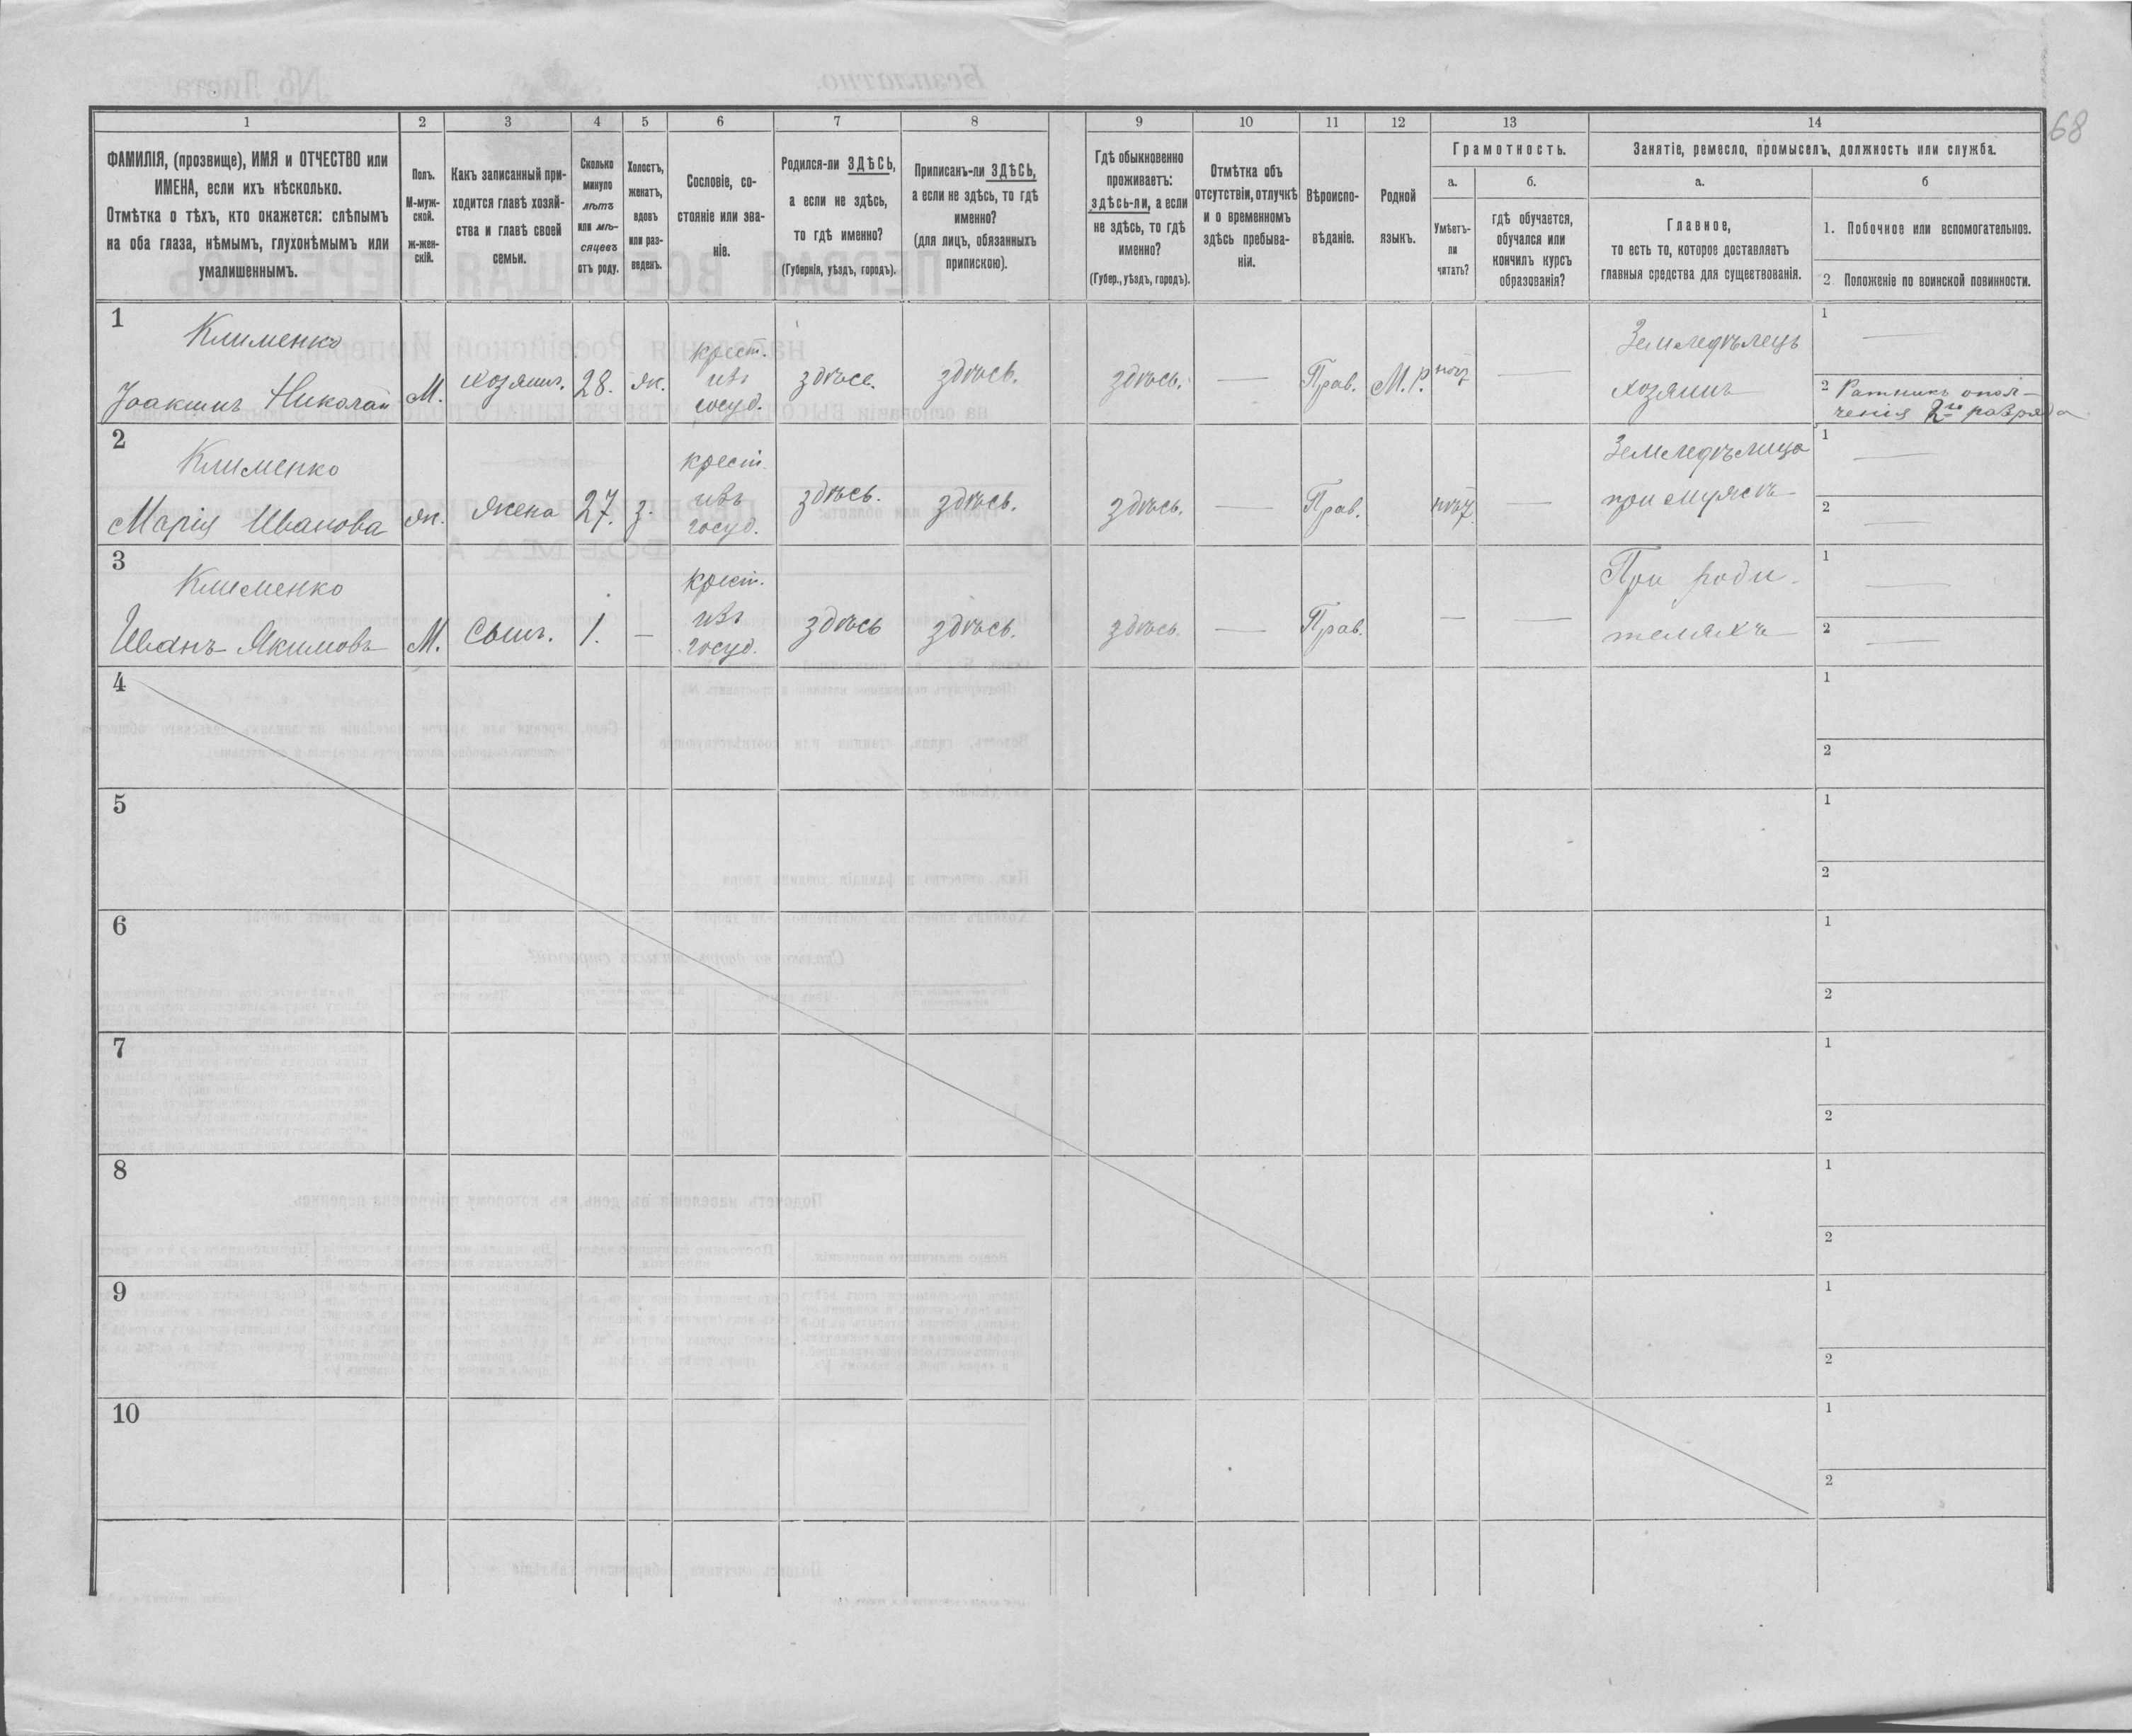 68
1 2 3 4 5 6 7 8 9 10 11 12 13 14
ФАМИЛІЯ, (прозвище), ИМЯ и ОТЧЕСТВО или
ИМЕНА, если ихъ нѣсколько.
Отмѣтка о тѣхъ, кто окажется: слѣпымъ
на оба глаза, нѣмымъ, глухонѣмымъ или
умалишеннымъ.
Полъ.
М-муж-
ской.
ж-жен-
скій.
Какъ записанный при-
ходится главѣ хозяй-
ства и главѣ своей
семьи.
Сколько
минуло
лѣтъ
или мѣ-
сяцевъ
отъ роду.
Холостъ,
женатъ,
вдовъ
или раз-
веденъ.
Сословіе, со-
стояніе или зва-
ніе.
Родился-ли ЗДѢСЬ,
а если не здѣсь,
то гдѣ именно?
(Губернія, уѣздъ, городъ).
Приписанъ-ли ЗДѢСЬ,
а если не здѣсь, то гдѣ
именно?
(для лицъ, обязанныхъ
припискою).
Гдѣ обыкновенно
проживаетъ:
здѣсь-ли, а если
не здѣсь, то гдѣ
именно?
(Губер., уѣздъ, городъ).
Отмѣтка объ
отсутствіи, отлучкѣ
и о временномъ
здѣсь пребыва-
ніи.
Вѣроиспо-
вѣданіе.
Родной
языкъ.
Грамотность.
а.
Умѣетъ-
ли
читать?
б.
гдѣ обучается,
обучался или
кончилъ курсъ
образованія?
Занятіе, ремесло, промыселъ, должность или служба.
а.
Главное,
то есть то, которое доставляетъ
главныя средства для существованія.
б
1. Побочное или вспомогательное.
2. Положеніе по воинской повинности.
1
Клименко
Іоакимъ Николай
М.
хозяинъ.
28.
ж.
крест.
изъ
госуд.
здѣсь.
здѣсь.
здѣсь.
—
Прав.
М. Р.
нѣт
—
Земледѣлецъ
хозяинъ
1 —
2 Ратникъ опол-
ченія 2го разряда
2
Клименко
Марія Иванова
ж.
жена
27.
з.
крест.
изъ
госуд.
здѣсь.
здѣсь.
здѣсь.
—
Прав.
нѣт
—
Земледѣлица
при мужѣ
1 —
2 —
3
Клименко
Иванъ Якимовъ
М.
Сынъ.
1.
—
крест.
изъ
госуд.
здѣсь
здѣсь.
здѣсь.
—
Прав.
—
—
При роди-
теляхъ
1 —
2 —
4
1
2
5
1
2
6
1
2
7
1
2
8
1
2
9
1
2
10
1
2